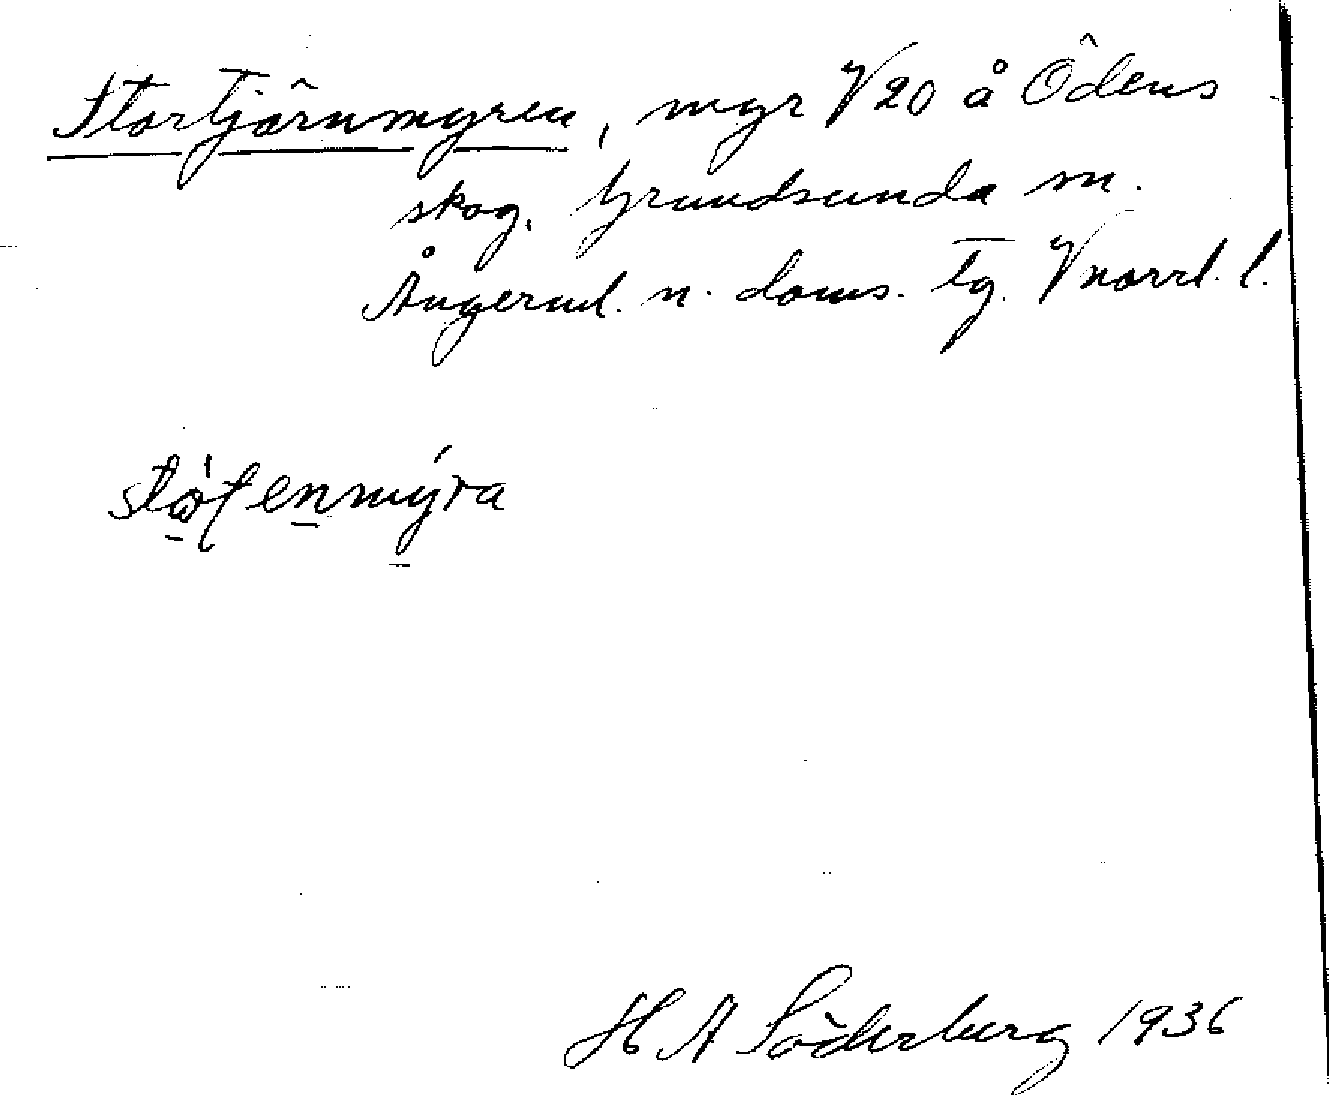 Stortjärnmyren, myr V 20 å Ödens-
skog. Grundsunda sn.
Ångerml. n. doms. tg. Vnorrl. l.
H A Söderberg 1936